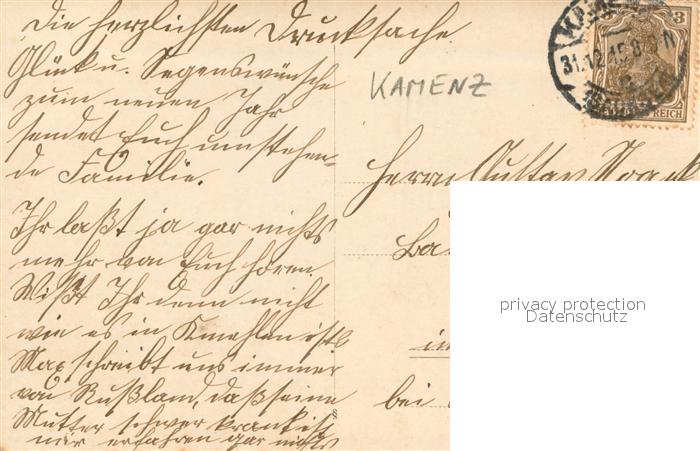 Die herzlichsten
Glück u. Segenswünsche
zum neuen Jahr
sendet Euch umstehen-
de Familie.
Ihr laßt ja gar nichts
mehr von Euch hören.
Wißt Ihr denn nicht
wie es in Kmehlen ist
Max schreibt uns immer
von Rußland, daß seine
Mutter schwer krank ist
wir erfahren gar nichts
Drucksache
KAMENZ
3
31.12.15.8
REICH
Herrn Gustav Noack
bei
§
privacy protection
Datenschutz